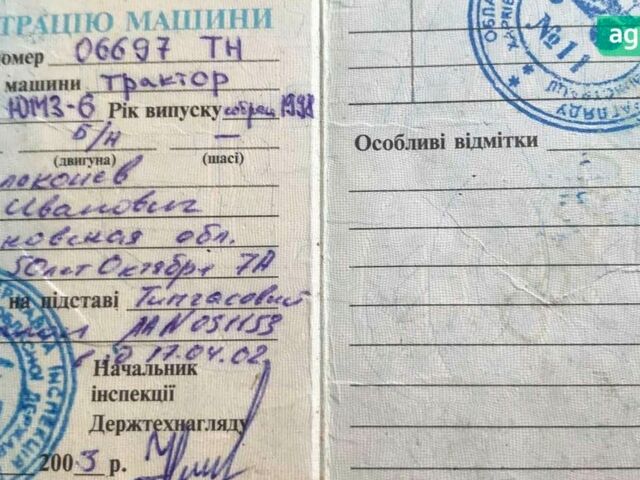 ТРАЦІЮ МАШИНИ
номер 06697 ТН
машини трактор
ЮМЗ-6 Рік випуску собран 1998
Б/Н —
(двигуна) (шасі)
Иванович
обл.
50 лет Октября 7А
на підставі
АА N 051153
17.04.02
Начальник
інспекції
Держтехнагляду
2003 р.
Особливі відмітки
№11
ag